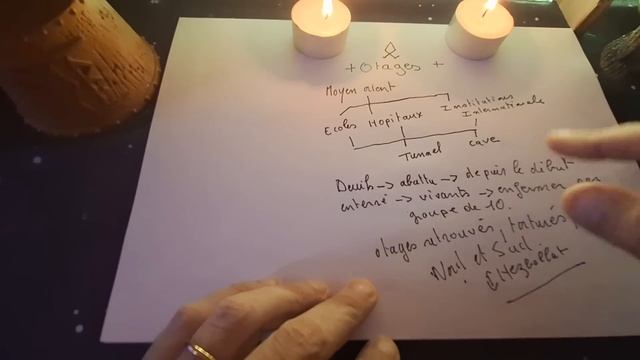 + Otages +
Moyen orient
Ecoles Hopitaux Institutions
Internationale
Tunnel cave
Deuils -> abattu -> depuis le début
enterré -> vivants -> enfermer par
groupe de 10.
otages retrouvés, torturés
Nord et Sud
Hezbollat